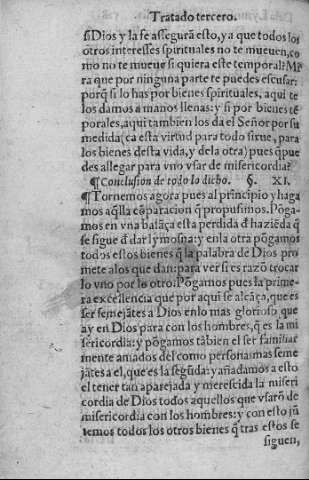 Tratado tercero.
si Dios y la fe assegurã esto, ya que todos los
otros interesses spirituales no te mueuen, co
mo no te mueue si quiera este temporal? Mi
ra que por ninguna parte te puedes escusar:
porq̃ si lo has por bienes spirituales, aqui te
los damos a manos llenas: y si por bienes tẽ
porales, aqui tambien los da el Señor por su
medida (ca esta virtud para todo sirue, para
los bienes desta vida, y dela otra) pues q̃ pue
des allegar para vno vsar de misericordia?
¶ Conclusion de todo lo dicho. §. XI.
¶ Tornemos agora pues al principio y haga
mos aq̃lla cõparacion q̃ propusimos. Põga-
mos en vna balãça esta perdida d̃ haziẽda q̃
se sigue d̃ dar lymosna: y enla otra põgamos
todos estos bienes q̃ la palabra de Dios pro
mete alos que dan: para ver si es razõ trocar
lo vno por lo otro: Põgamos pues la prime-
ra excellencia que por aqui se alcãça, que es
ser semejãte a Dios enlo mas glorioso que
ay en Dios para con los hombres, q̃ es la mi
sericordia: y põgamos tãbien el ser familiar
mente amados del como personas mas seme
jãtes a el, que es la segũda: y añadamos a esto
el tener tan aparejada y merescida la miseri
cordia de Dios todos aquellos que vsarõ de
misericordia con los hombres: y con esto jũ
temos todos los otros bienes q̃ tras estos se
siguen,